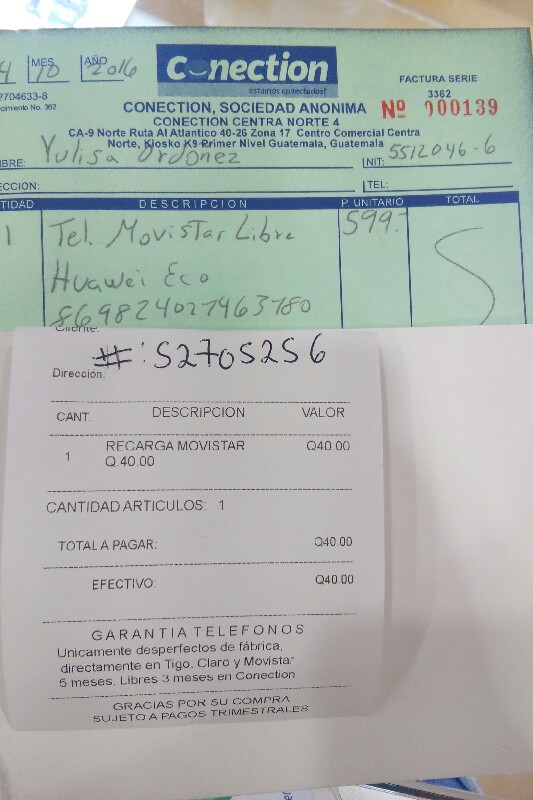 4 MES 10 AÑO 2016
Conection
estamos conectados!
FACTURA SERIE
2704633-8
3362
cimiento No. 362
CONECTION, SOCIEDAD ANONIMA
Nº 000139
CONECTION CENTRA NORTE 4
CA-9 Norte Ruta Al Atlantico 40-26 Zona 17 Centro Comercial Centra
Norte, Kiosko K9 Primer Nivel Guatemala, Guatemala
BRE: Yulisa Ordonez NIT: 5512046-6
ECCION: TEL:
TIDAD DESCRIPCION P. UNITARIO TOTAL
1 Tel. Movistar Libre 599.-
Huawei Eco
869824027463780
Cliente:
#: 52705256
Dirección:
CANT. DESCRIPCION VALOR
1 RECARGA MOVISTAR Q40.00
Q.40.00
CANTIDAD ARTICULOS: 1
TOTAL A PAGAR: Q40.00
EFECTIVO: Q40.00
GARANTIA TELEFONOS
Unicamente desperfectos de fábrica,
directamente en Tigo, Claro y Movistar
5 meses, Libres 3 meses en Conection
GRACIAS POR SU COMPRA
SUJETO A PAGOS TRIMESTRALES